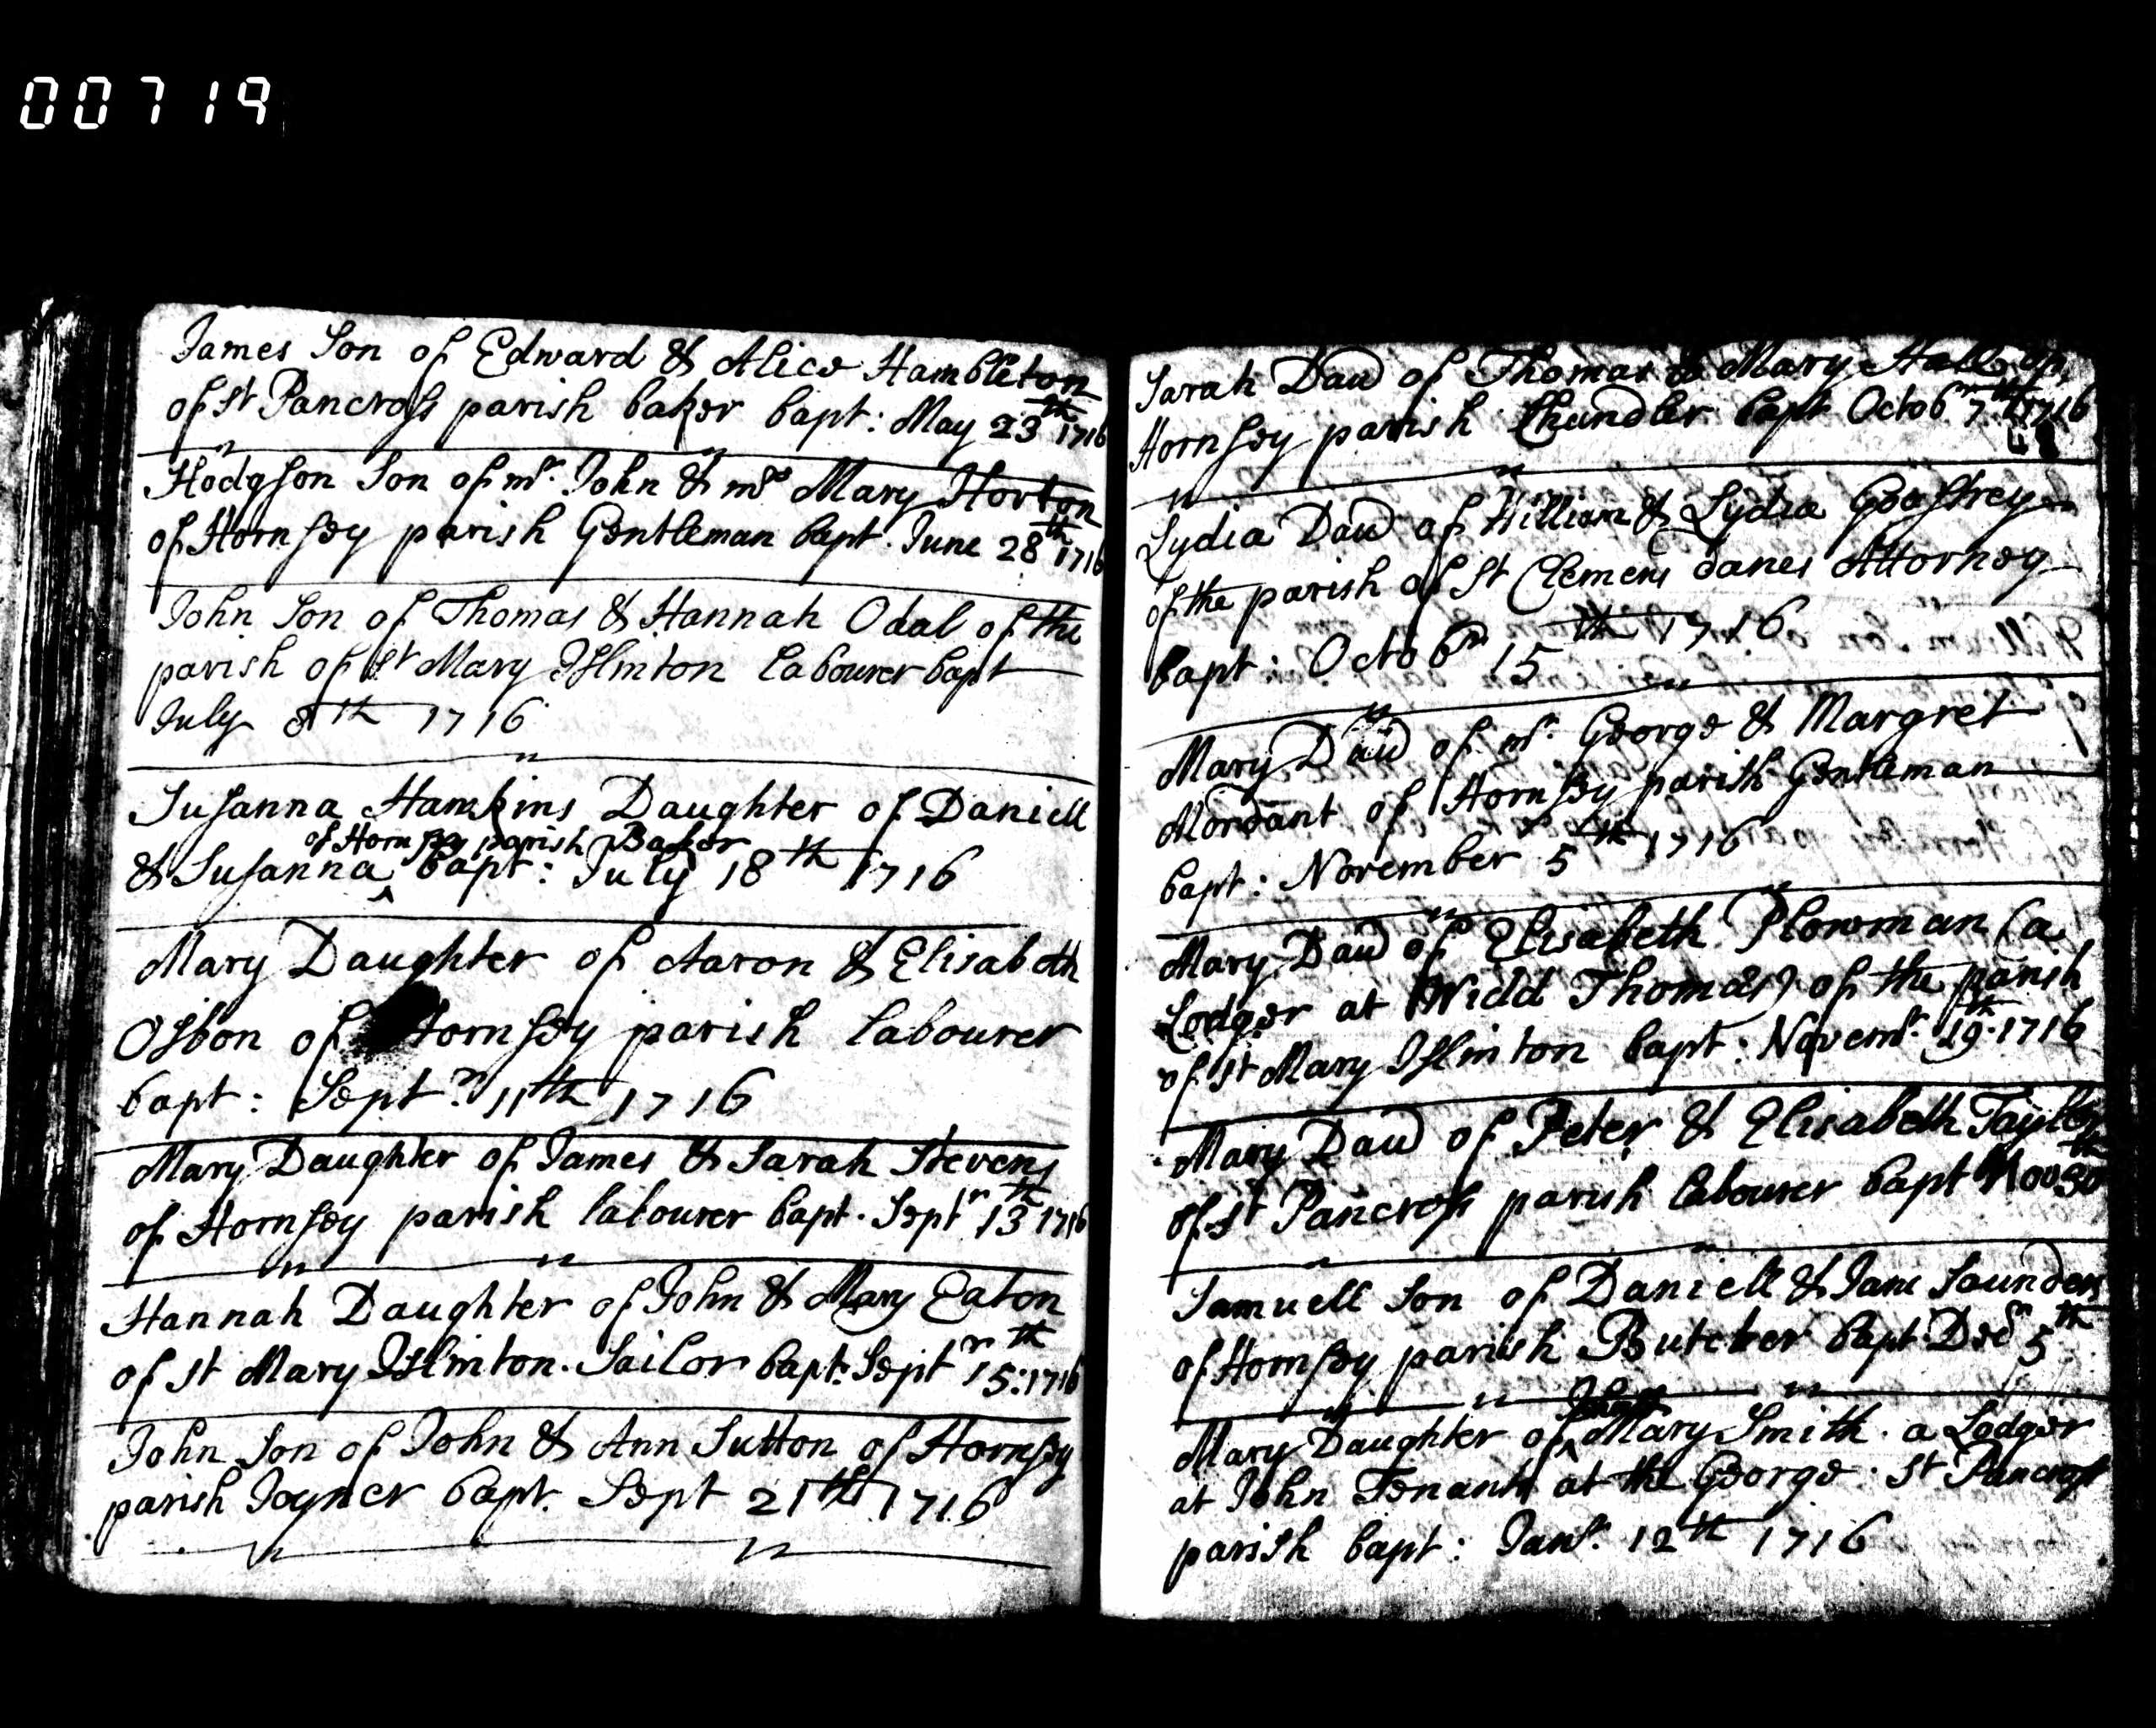 00719
James Son of Edward & Alice Hambleton
of St Pancross parish baker bapt: May 23th 1716
Hodgson Son of mr. John & mrs Mary Horton
of Hornsey parish Gentleman bapt. June 28th 1716
John Son of Thomas & Hannah Odal of the
parish of St Mary Islinton labourer bapt
July 8th 1716
Susanna Hawkins Daughter of Daniell
of Hornsey parish Baker
& Susanna ^ bapt: July 18th 1716
Mary Daughter of Aaron & Elisabeth
Osbon of Hornsey parish labourer
bapt: Septr 11th 1716
Mary Daughter of James & Sarah Stevens
of Hornsey parish labourer bapt. Septr 13th 1716
Hannah Daughter of John & Mary Eaton
of St Mary Islinton. Sailor bapt: Septr 15th: 1716
John Son of John & Ann Sutton of Hornsey
parish Joyner bapt. Sept 21th 1716
Sarah Dau of Thomas & Mary
Hornsey parish Chandler bapt Octobr 7th 1716
Lydia Dau of William & Lydia Geoffrey
of the parish of St Clemens danes Attorney
bapt: Octobr 15th 1716
Mary Dau of mr. George & Margret
Mordant of Hornsey parish Gentleman
bapt: November 5th 1716
Mary Dau of Elisabeth Plowman (a
Lodger at Widd Thomas) of the parish
of St Mary Islinton bapt: Novemr. 19th 1716
Mary Dau of Peter & Elisabeth Tayler
of St Pancross parish labourer bapt Nov 30th
Samuell Son of Daniell & Jane Saunders
of Hornsey parish Butcher bapt Decr 5th
Mary Daughter of ^ Mary Smith. a Lodger
at John Tenants at the George. St Pancross
parish bapt: Janr. 12th 1716